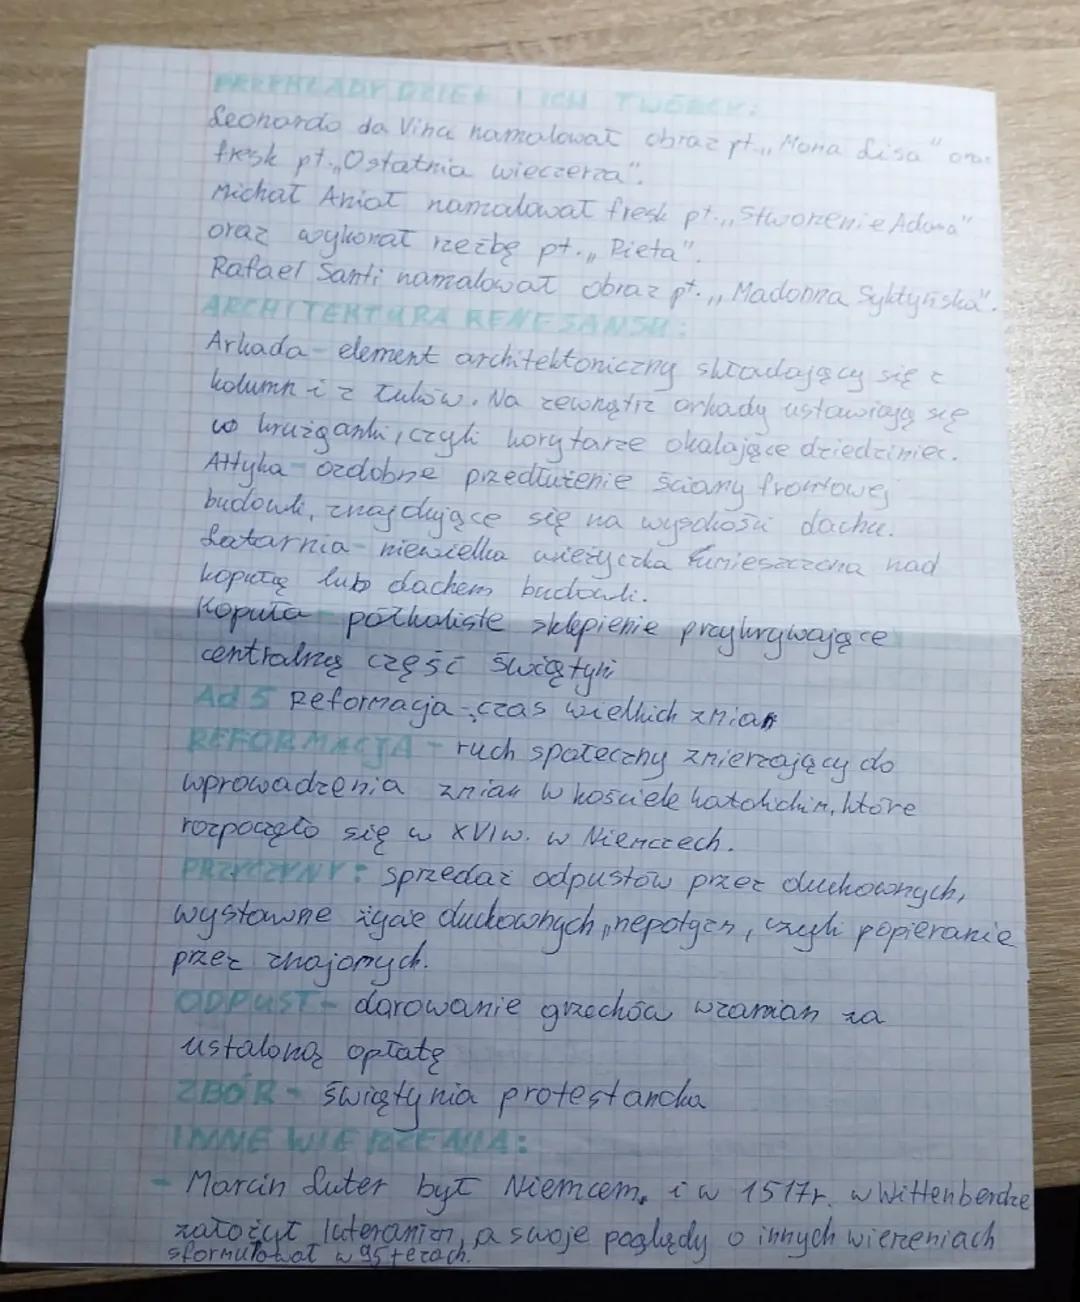 PRZYKŁADY DZIEŁ I ICH TWÓRCY:
Leonardo da Vinci namalował obraz pt. „Mona Lisa" oraz
fresk pt. „Ostatnia wieczerza".
Michał Anioł namalował fresk pt. „Stworzenie Adama"
oraz wykonał rzeźbę pt. „Pieta".
Rafael Santi namalował obraz pt. „Madonna Sykstyńska".
ARCHITEKTURA RENESANSU:
Arkada - element architektoniczny składający się z
kolumn i z łuków. Na zewnątrz arkady ustawiają się
w krużganki, czyli korytarze okalające dziedziniec.
Attyka - ozdobne przedłużenie ściany frontowej
budowli, znajdujące się na wysokości dachu.
Latarnia - niewielka wieżyczka umieszczona nad
kopułą lub dachem budowli.
Kopuła - półkoliste sklepienie przykrywające
centralną część świątyni
Ad 5 Reformacja - czas wielkich zmian
REFORMACJA - ruch społeczny zmierzający do
wprowadzenia zmian w kościele katolickim, które
rozpoczęło się w XVI w. w Niemczech.
PRZYCZYNY: sprzedaż odpustów przez duchownych,
wystawne życie duchownych, nepotyzm, czyli popieranie
przez znajomych.
ODPUST - darowanie grzechów wzamian za
ustaloną opłatę
ZBÓR - świątynia protestancka
INNE WIERZENIA:
- Marcin Luter był Niemcem. i w 1517r. w Wittenberdze
założył luteranizm, a swoje poglądy o innych wierzeniach
sformułował w 95 tezach.